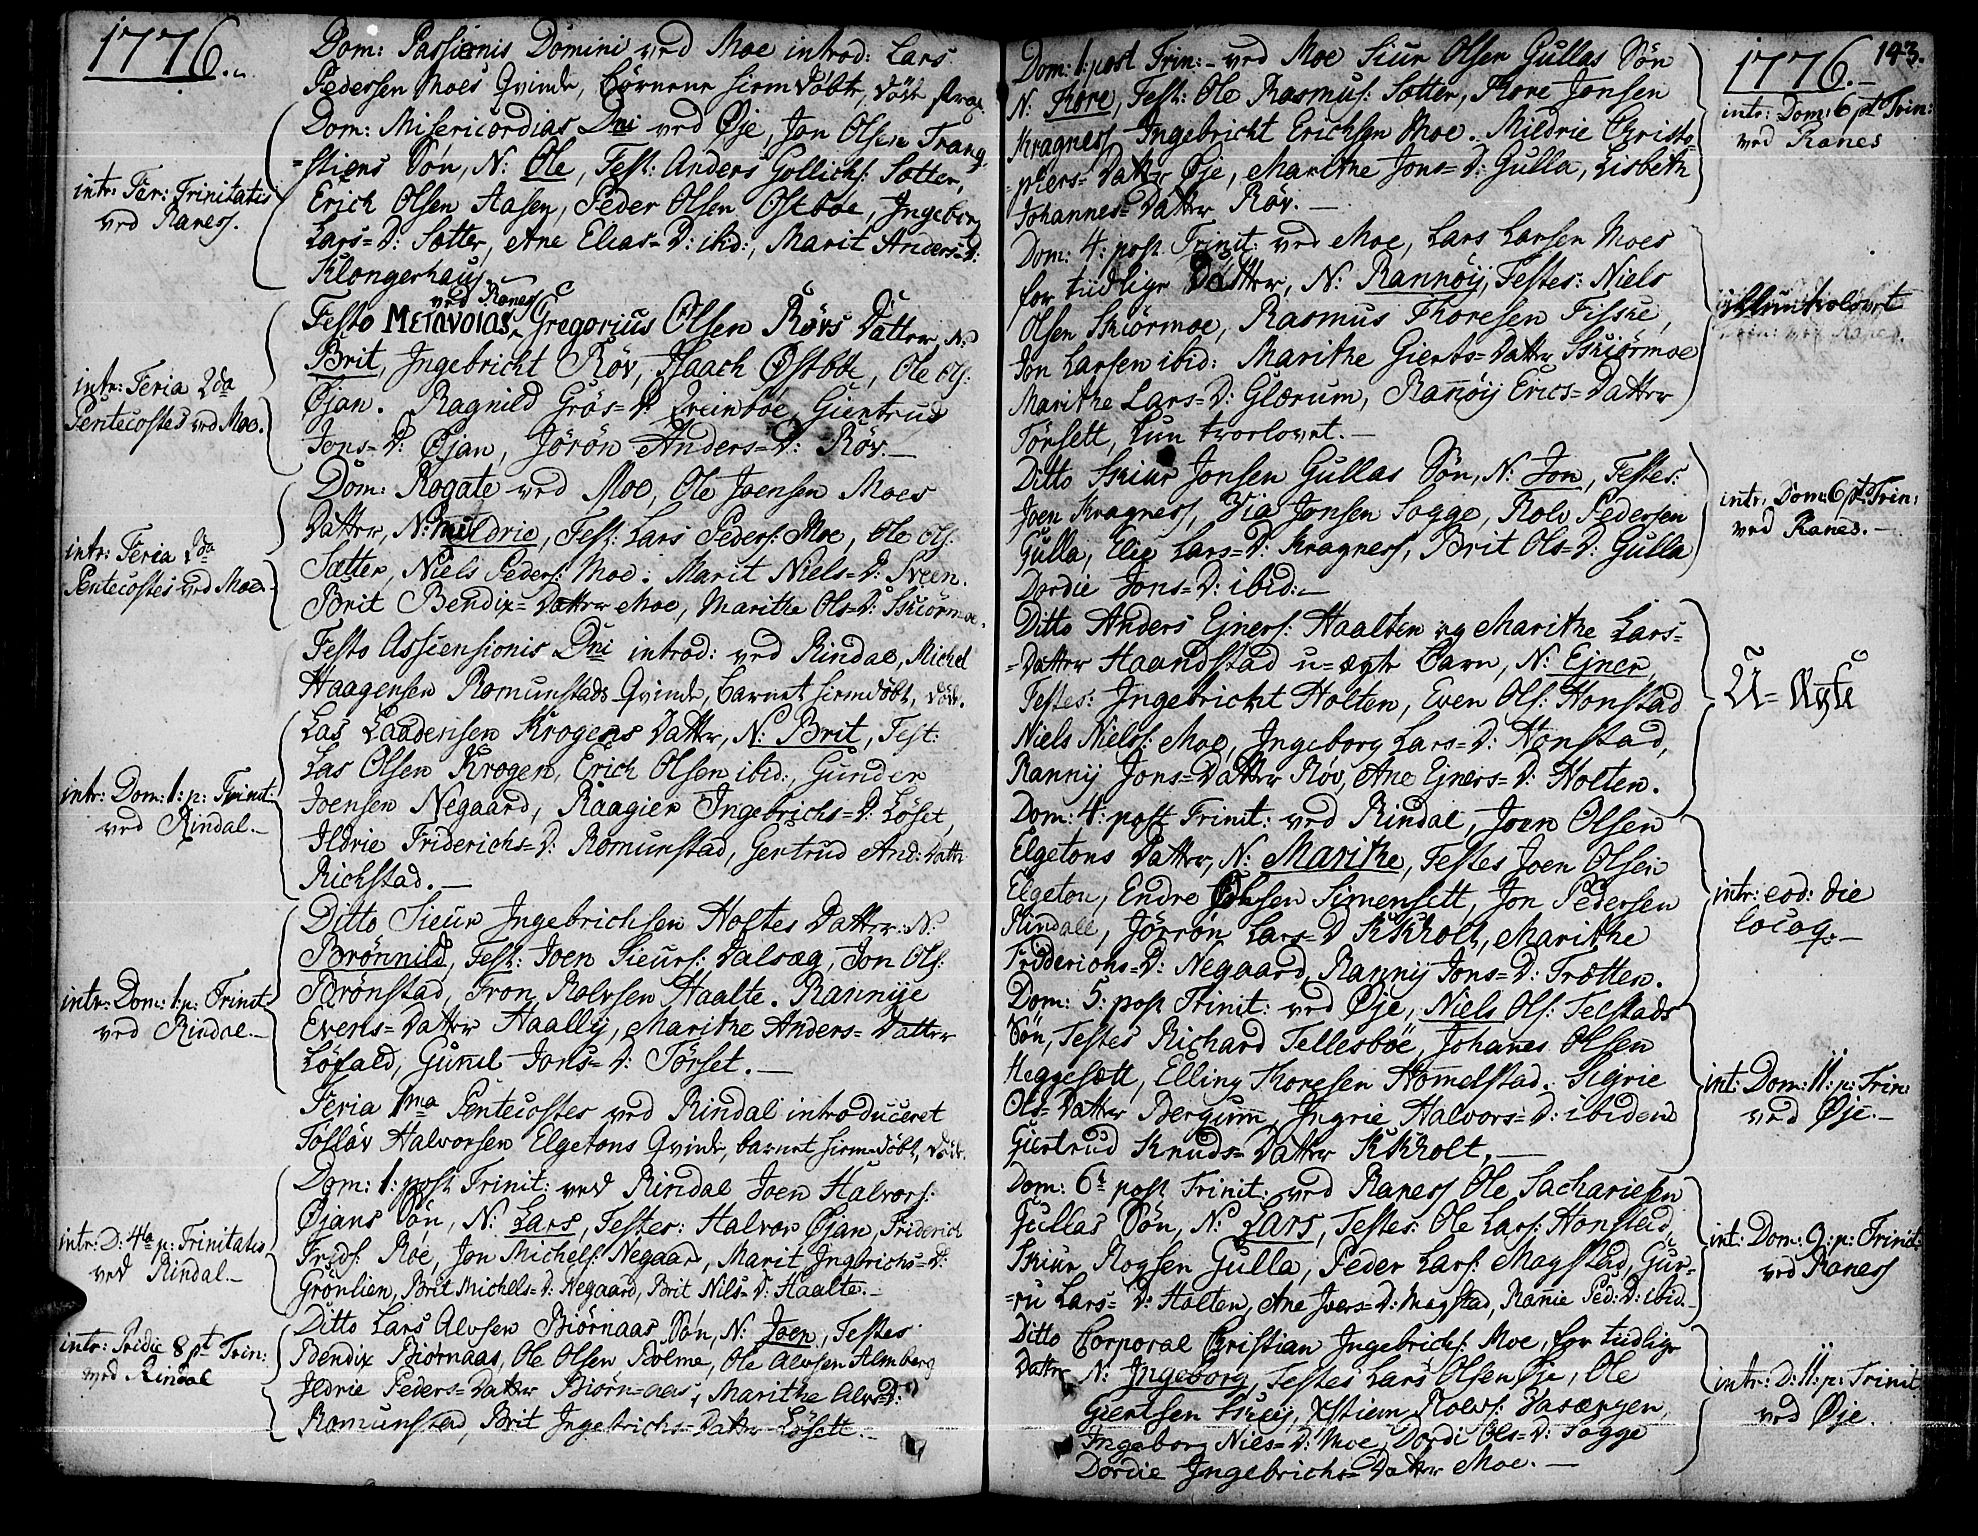 1776.
Dom: Passionis Domini ved Moe introd: Lars
Pedersen Moes Qvinde, börnene hiemdöbte, döde strax.
Dom: Misericordias Dni ved Øje, Jon Olsen Trang-
=stiens Sön, N: Ole, Test: Anders Gollichs: Sætter,
Erich Olsen Aasen, Peder Olsen Ostboe, Ingeborg
Lars=D: Sætter, Ane Elias=D: ibid:, Marit Anders=D:
Klongerhaug
intr: Fer: Trinitatis
ved Raness.
ved Raness
Festo Μετανοίας, Gregorius Olsen Røvs Datter, N:
Brit, Ingebricht Røv, Isaach Østboe, Ole Ols:
Øjan. Ragnild Grös=D: Treinboe, Giertrud
Jons=D: Øjan, Jörön Anders=D: Röv.—
intr: Feria 2da
Pentecostes ved Moe.
Dom: Rogate ved Moe, Ole Joensen Moes
Datter, N: Mildrie, Test: Lars Peders: Moe, Ole Ols:
Sætter, Niels Peders: Moe. Marit Niels=D: Sveen.
Brit Bendix=Datter Moe, Marithe Ols=D: Skiörmoe.
intr: Feria 2da
Pentecostes ved Moe.
Festo Asscensionis Dni introd: ved Rindal, Michel
Haagensen Romunstads Qvinde, barnet hiemdöbt, död.
Las Laadensen Krogens Datter, N: Brit, Test:
Las Olsen Krogen, Erich Olsen ibid:, Gunder
Joensen Negaard, Raagier Ingebrichs=D: Löset,
Ildrie Friderichs=D: Romunstad, Gertrud And: Datter
Richstad.—
intr: Dom: 1: p: Trinit:
ved Rindal.—
Ditto Sieur Ingebrichsen Holtes Datter N:
Brönnild, Test: Joen Sieurs: Dalsæg, Jon Ols:
Brönstad, Tron Rolvsen Haalte. Rannije
Evens=Datter Haally, Marithe Anders=Datter
Löfald, Gunil Jons=D: Törset.—
intr: Dom: 1: p: Trinit:
ved Rindal.—
Feria 1ma Pentecostes ved Rindal introduceret
Tösläv Halvorsen Elgetons Qvinde, barnet hiemdöbt, död.
Dom: 1: post Trinit: ved Rindal Joen Halvors:
Øjans Sön, N: Lars, Testes: Halvor Øjan, Friderich
Frids: Roe, Jon Michels: Negaar, Marit Ingbrichs=D:
Grönlien, Brit Michels=D: Negaard, Brit Nils=D: Haalte.—
intr: D: 4ta p: Trinitatis
ved Rindal.—
Ditto Lars Alvsen Biörnaas Sön, N: Joen, Testes
Bendix Biörnaas, Ole Olsen Bolme, Ole Alvsen Almberg
Ildrie Peders=Datter Biörn=aas, Marithe Alvs=D:
Romunstad, Brit Ingebrichs=Datter Lösett.—
intr: Pridie 8 pt Trin:
ved Rindal
1776.—
143.
Dom: 1: post Trin:— ved Moe Siur Olsen Gullas Sön
N: Thore, Test: Ole Rasmus: Sætter, Thore Jonsen
Kragness Ingebricht Erichsen Moe. Mildrie Christo-
=phers=Datter Øje, Marithe Jons=D: Gulla, Lisbeth
Johannes=Datter Röv.—
intr: Dom: 6 pt Trin:
ved Ranes
Dom: 4: post Trinit: ved Moe, Lars Larsen Moes
for tidlige Datter, N: Rannöij, Testes: Niels
Olsen Skiörmoe, Rasmus Thoresen Fiske,
Jon Larsen ibid: Marithe Gierts=Datter Skiörmoe
Marithe Lars=D: Glærum, Ranöij Erics=Datter
Törsett, kun trorlovet.—
Ditto Skiur Jonsen Gullas Sön, N: Jon, Testes:
Joen Kragness, Joen Jonsen Sogge, Rolv Pedersen
Gulla, Elie Lars=D: Kragness, Brit Ols=D: Gulla
Dordie Jons=D: ibid:—
intr: Dom: 6 pt Trin:
ved Ranes.—
Ditto Anders Ejners: Haalten og Marithe Lars=
=Datter Haandstad u=ægte Barn, N: Ejner,
Testes: Ingebricht Holten, Even Ols: Honstad
Niels Niels: Moe, Ingeborg Lars=D: Honstad,
Rannij Jons=Datter Röv, Ane Ejners=D: Holten.
U=Ægte
Dom: 4: post Trinit: ved Rindal, Joen Olsen
Elgetons Datter, N: Marithe, Testes Joen Olsen
Elgeton, Endre Olsen Simensett, Jon Pedersen
Rindal, Jörrön Lars=D Kirkholt, Marithe
Friderichs=D: Negaard, Rannij Jons=D: Trötten.
intr: eod: die
locoq:—
Dom: 5: post Trinit: ved Øje, Niels Ols: Telstads
Sön, Testes Richard Tellesböe, Johanes Olsen
Heggesætt, Elling Thoresen Homelstad. Sigrie
Ols=Datter Bergum, Ingrie Halvors=D: ibidem
Giertrud Knuds=Datter Kirkholt.—
int: Dom: 11: p: Trin:
ved Øje.—
Dom: 6te post Trinit: ved Raness Ole Sachariesen
Gullas Sön, N: Lars, Testes: Ole Lars: Honstad,
Skiur Rogsen Gulla, Peder Lars: Magstad, Gur=
=ru Lars=D: Holten, Ane Ivers=D: Magstad, Ranie Ped:D: ibid.
int: Dom: 9: p: Trinit:
ved Raness
Ditto Corporal Christian Ingebrichs: Moe, for tidlige
Datter N: Ingeborg, Testes Lars Olsen Øje, Ole
Giertsen Skeij, Xstiern Rolvs: Aasængen,
Ingeborg Niels=D: Moe, Dordi Ols=D: Sogge
Dordie Ingebrichs=Datter Moe.—
intr: D: 11: p: Trinit
ved Øje.